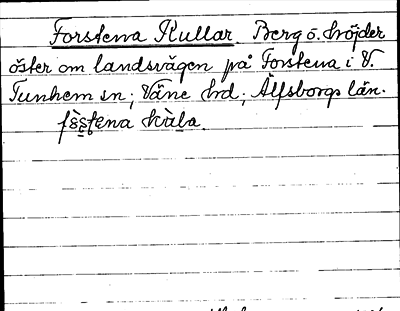 Forstena Kullar. Berg o. höjder
öster om landsvägen på Forstena i V.
Tunhem sn; Väne hd; Älfsborgs län.